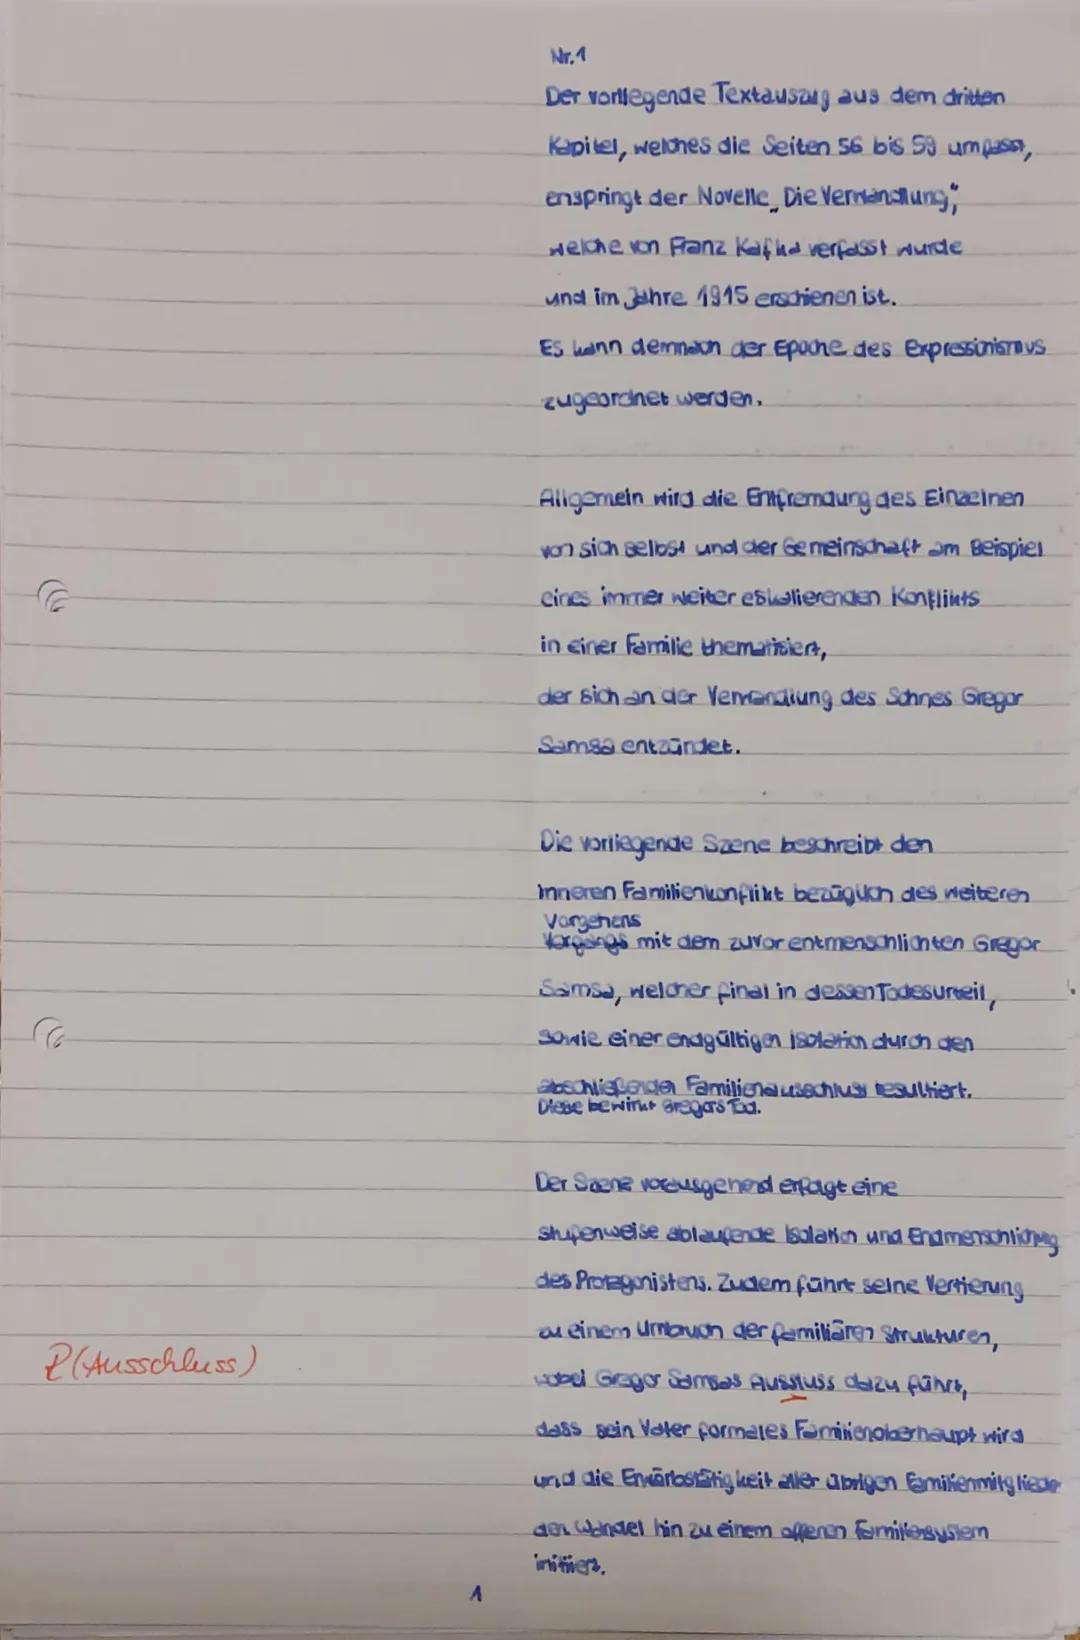 Nr. 1
Der vorliegende Textauszug aus dem dritten
Kapitel, welches die Seiten 56 bis 59 umfasst,
enspringt der Novelle „Die Verwandlung“,
welche von Franz Kafka verfasst wurde
und im Jahre 1915 erschienen ist.
Es kann demnach der Epoche des Expressionismus
zugeordnet werden.
Allgemein wird die Entfremdung des Einzelnen
von sich selbst und der Gemeinschaft am Beispiel
eines immer weiter eskalierenden Konflikts
in einer Familie thematisiert,
der sich an der Verwandlung des Sohnes Gregor
Samsa entzündet.
Die vorliegende Szene beschreibt den
inneren Familienkonflikt bezüglich des weiteren
Vorgehens
Vorgangs mit dem zuvor entmenschlichten Gregor
Samsa, welcher final in dessen Todesurteil,
sowie einer endgültigen Isolation durch den
abschließenden Familienausschluss resultiert.
Diese bewirkt Gregors Tod.
Der Szene vorausgehend erfolgt eine
stufenweise ablaufende Isolation und Endmenschlichung
des Protagonistens. Zudem führt seine Vertierung
zu einem Umbruch der familiären Strukturen,
R(Ausschluss) wobei Gregor Samsas Aussluss dazu führt,
dass sein Vater formales Familienoberhaupt wird
und die Erwärbstätigkeit aller übrigen Familienmitglieder
den Wandel hin zu einem offenen Familiensystem
initiiert.
1